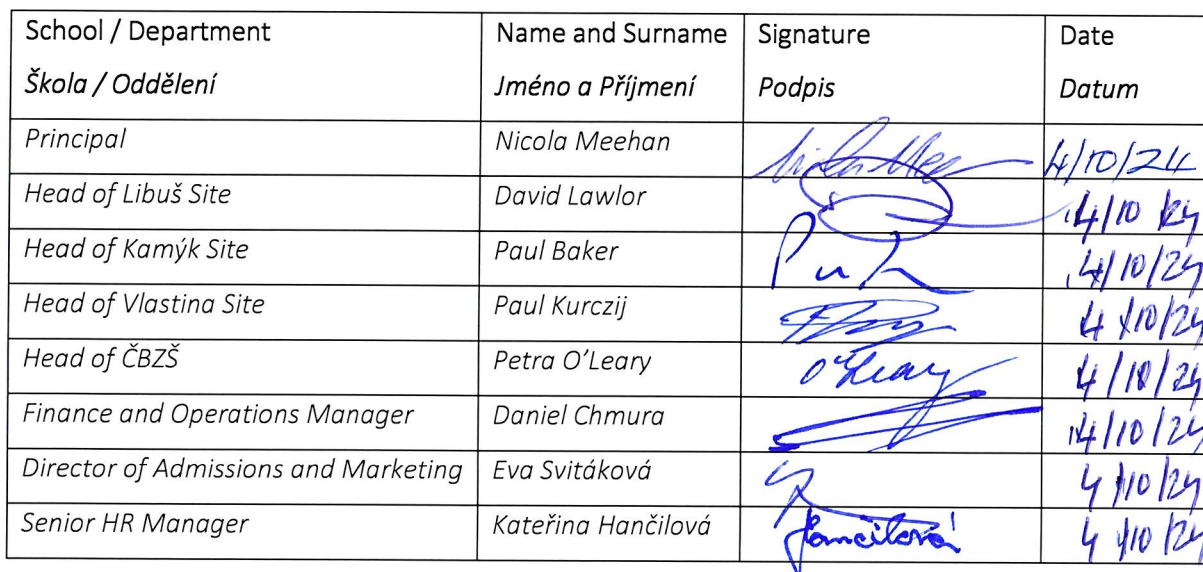 School / Department Name and Surname Signature Date
Škola / Oddělení Jméno a Příjmení Podpis Datum
Principal Nicola Meehan 4/10/24
Head of Libuš Site David Lawlor 4/10/24
Head of Kamýk Site Paul Baker 4/10/24
Head of Vlastina Site Paul Kurczij 4/10/24
Head of ČBZŠ Petra O'Leary O'Leary 4/10/24
Finance and Operations Manager Daniel Chmura 4/10/24
Director of Admissions and Marketing Eva Svitáková 4/10/24
Senior HR Manager Kateřina Hančilová Hančilová 4/10/24